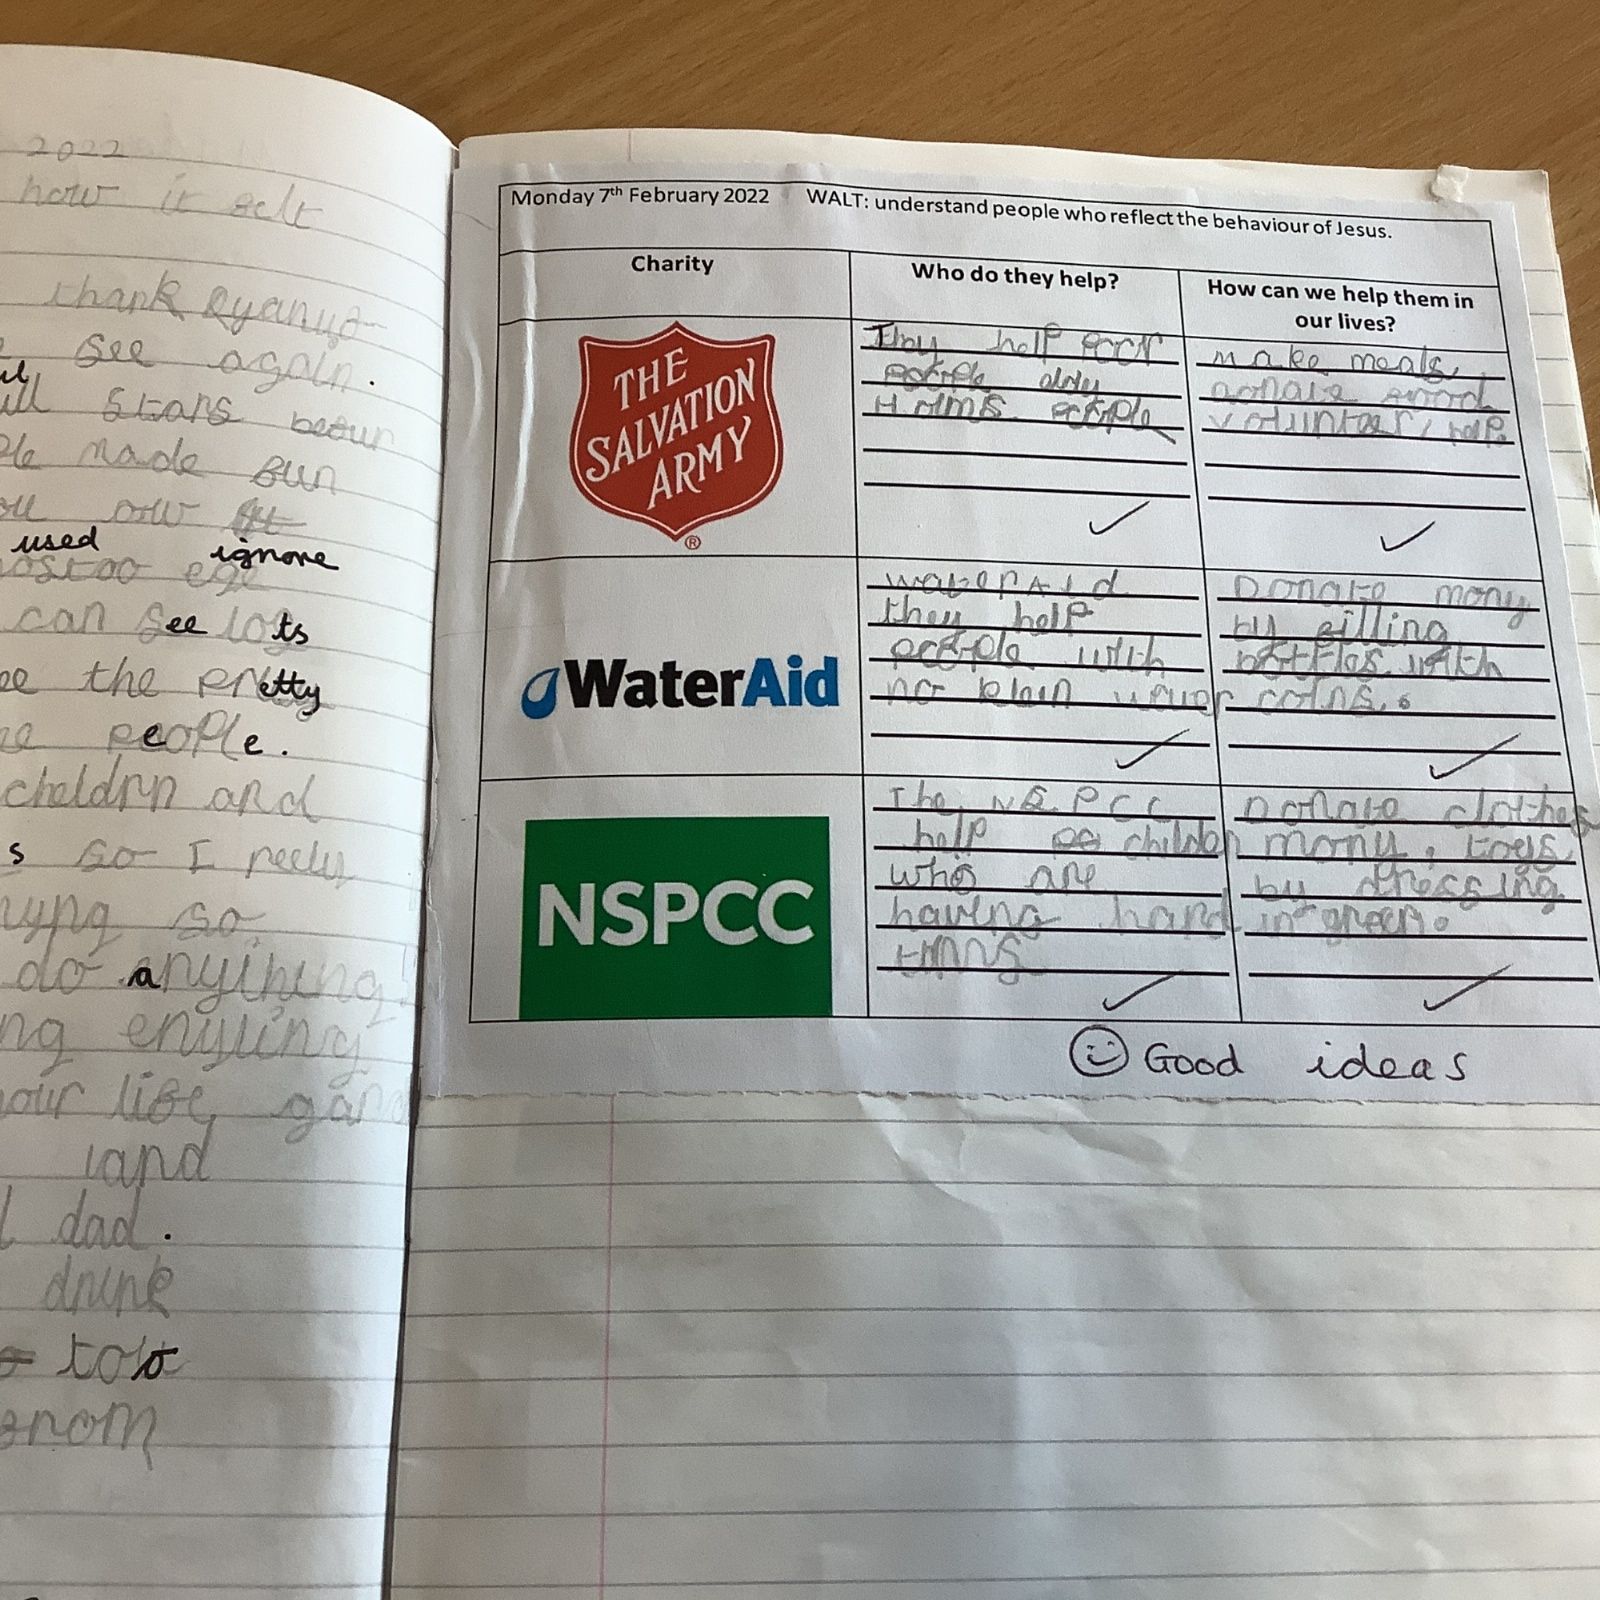 2022
how it felt
thank Ryanuf
see again.
ull stars beour
made sun
ou ow
used ignore
can see lots
ee the pretty
people.
cheldrn and
s so I reely
nypg so
do anything
ng enyiing
our life, gan
land
dad.
drink
too
from
Monday 7th February 2022 WALT: understand people who reflect the behaviour of Jesus.
Charity Who do they help? How can we help them in
our lives?
THE
SALVATION
ARMY
®
They help poor
people
Homs people
make meals,
donate food
volunteer, help.
WaterAid
waterAid
they help
people with
no klein
Donate mony
by filling
bottles with
coins.
NSPCC
The NSPCC
help childdn
who are
having hard
timns
Donate clothes
mony, toys
by dressing
in green.
Good ideas